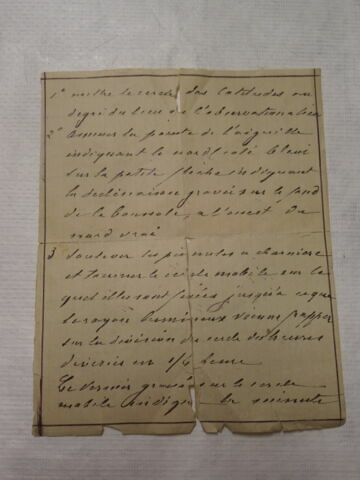 1° mettre le cercle des latitudes au
degré du lieu de l'observation
2° amener la pointe de l'aiguille
indiquant le nord (coté bleui
sur la petite flèche indiquant
la déclinaison gravée sur le fond
de la boussole, a l'ouest du
nord vrai
3 soulever les pinnules a charnière
et tourner le cercle mobile sur le
quel elles sont fixées jusqu'a ce que
le rayon lumineux vienne frapper
sur la division du cercle des heures
divisées en 1/4 heure
Le vernier gravé sur le cercle
mobile indique la minute